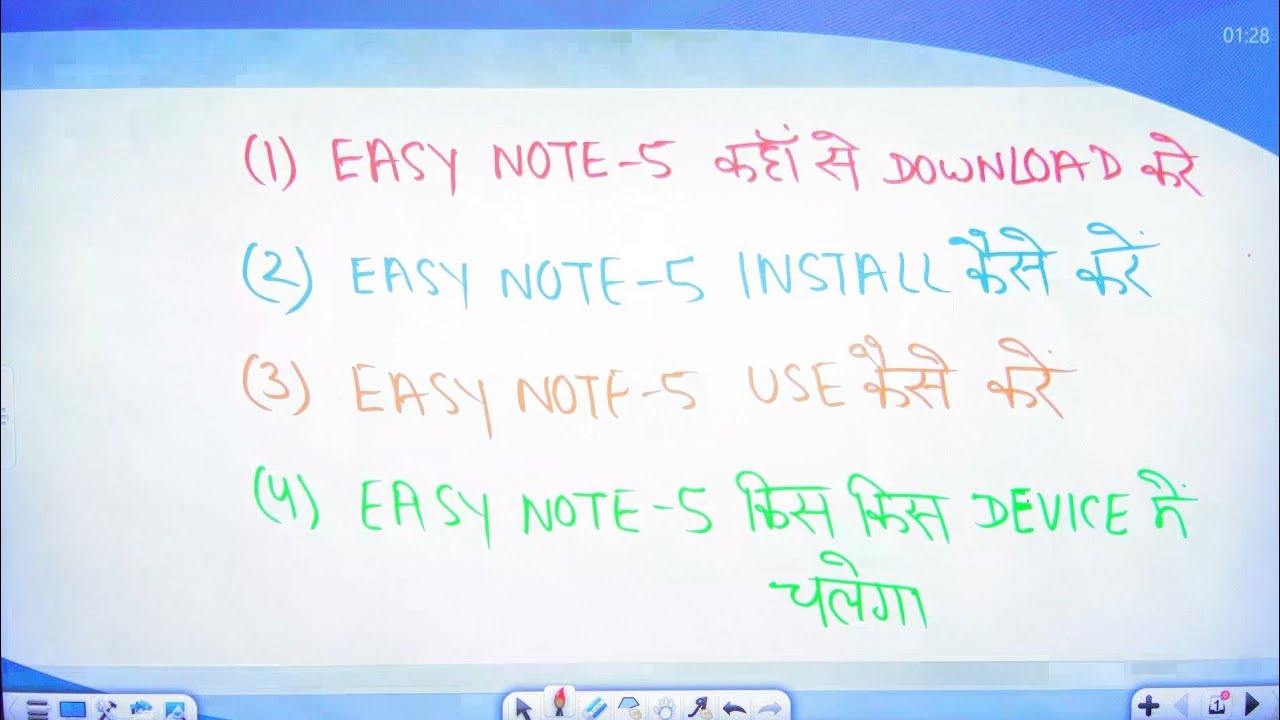 01:28
(1) EASY NOTE-5 कहाँ से DOWNLOAD करे
(2) EASY NOTE-5 INSTALL कैसे करें
(3) EASY NOTE-5 USE कैसे करें
(4) EASY NOTE-5 किस किस DEVICE में
चलेगा
1